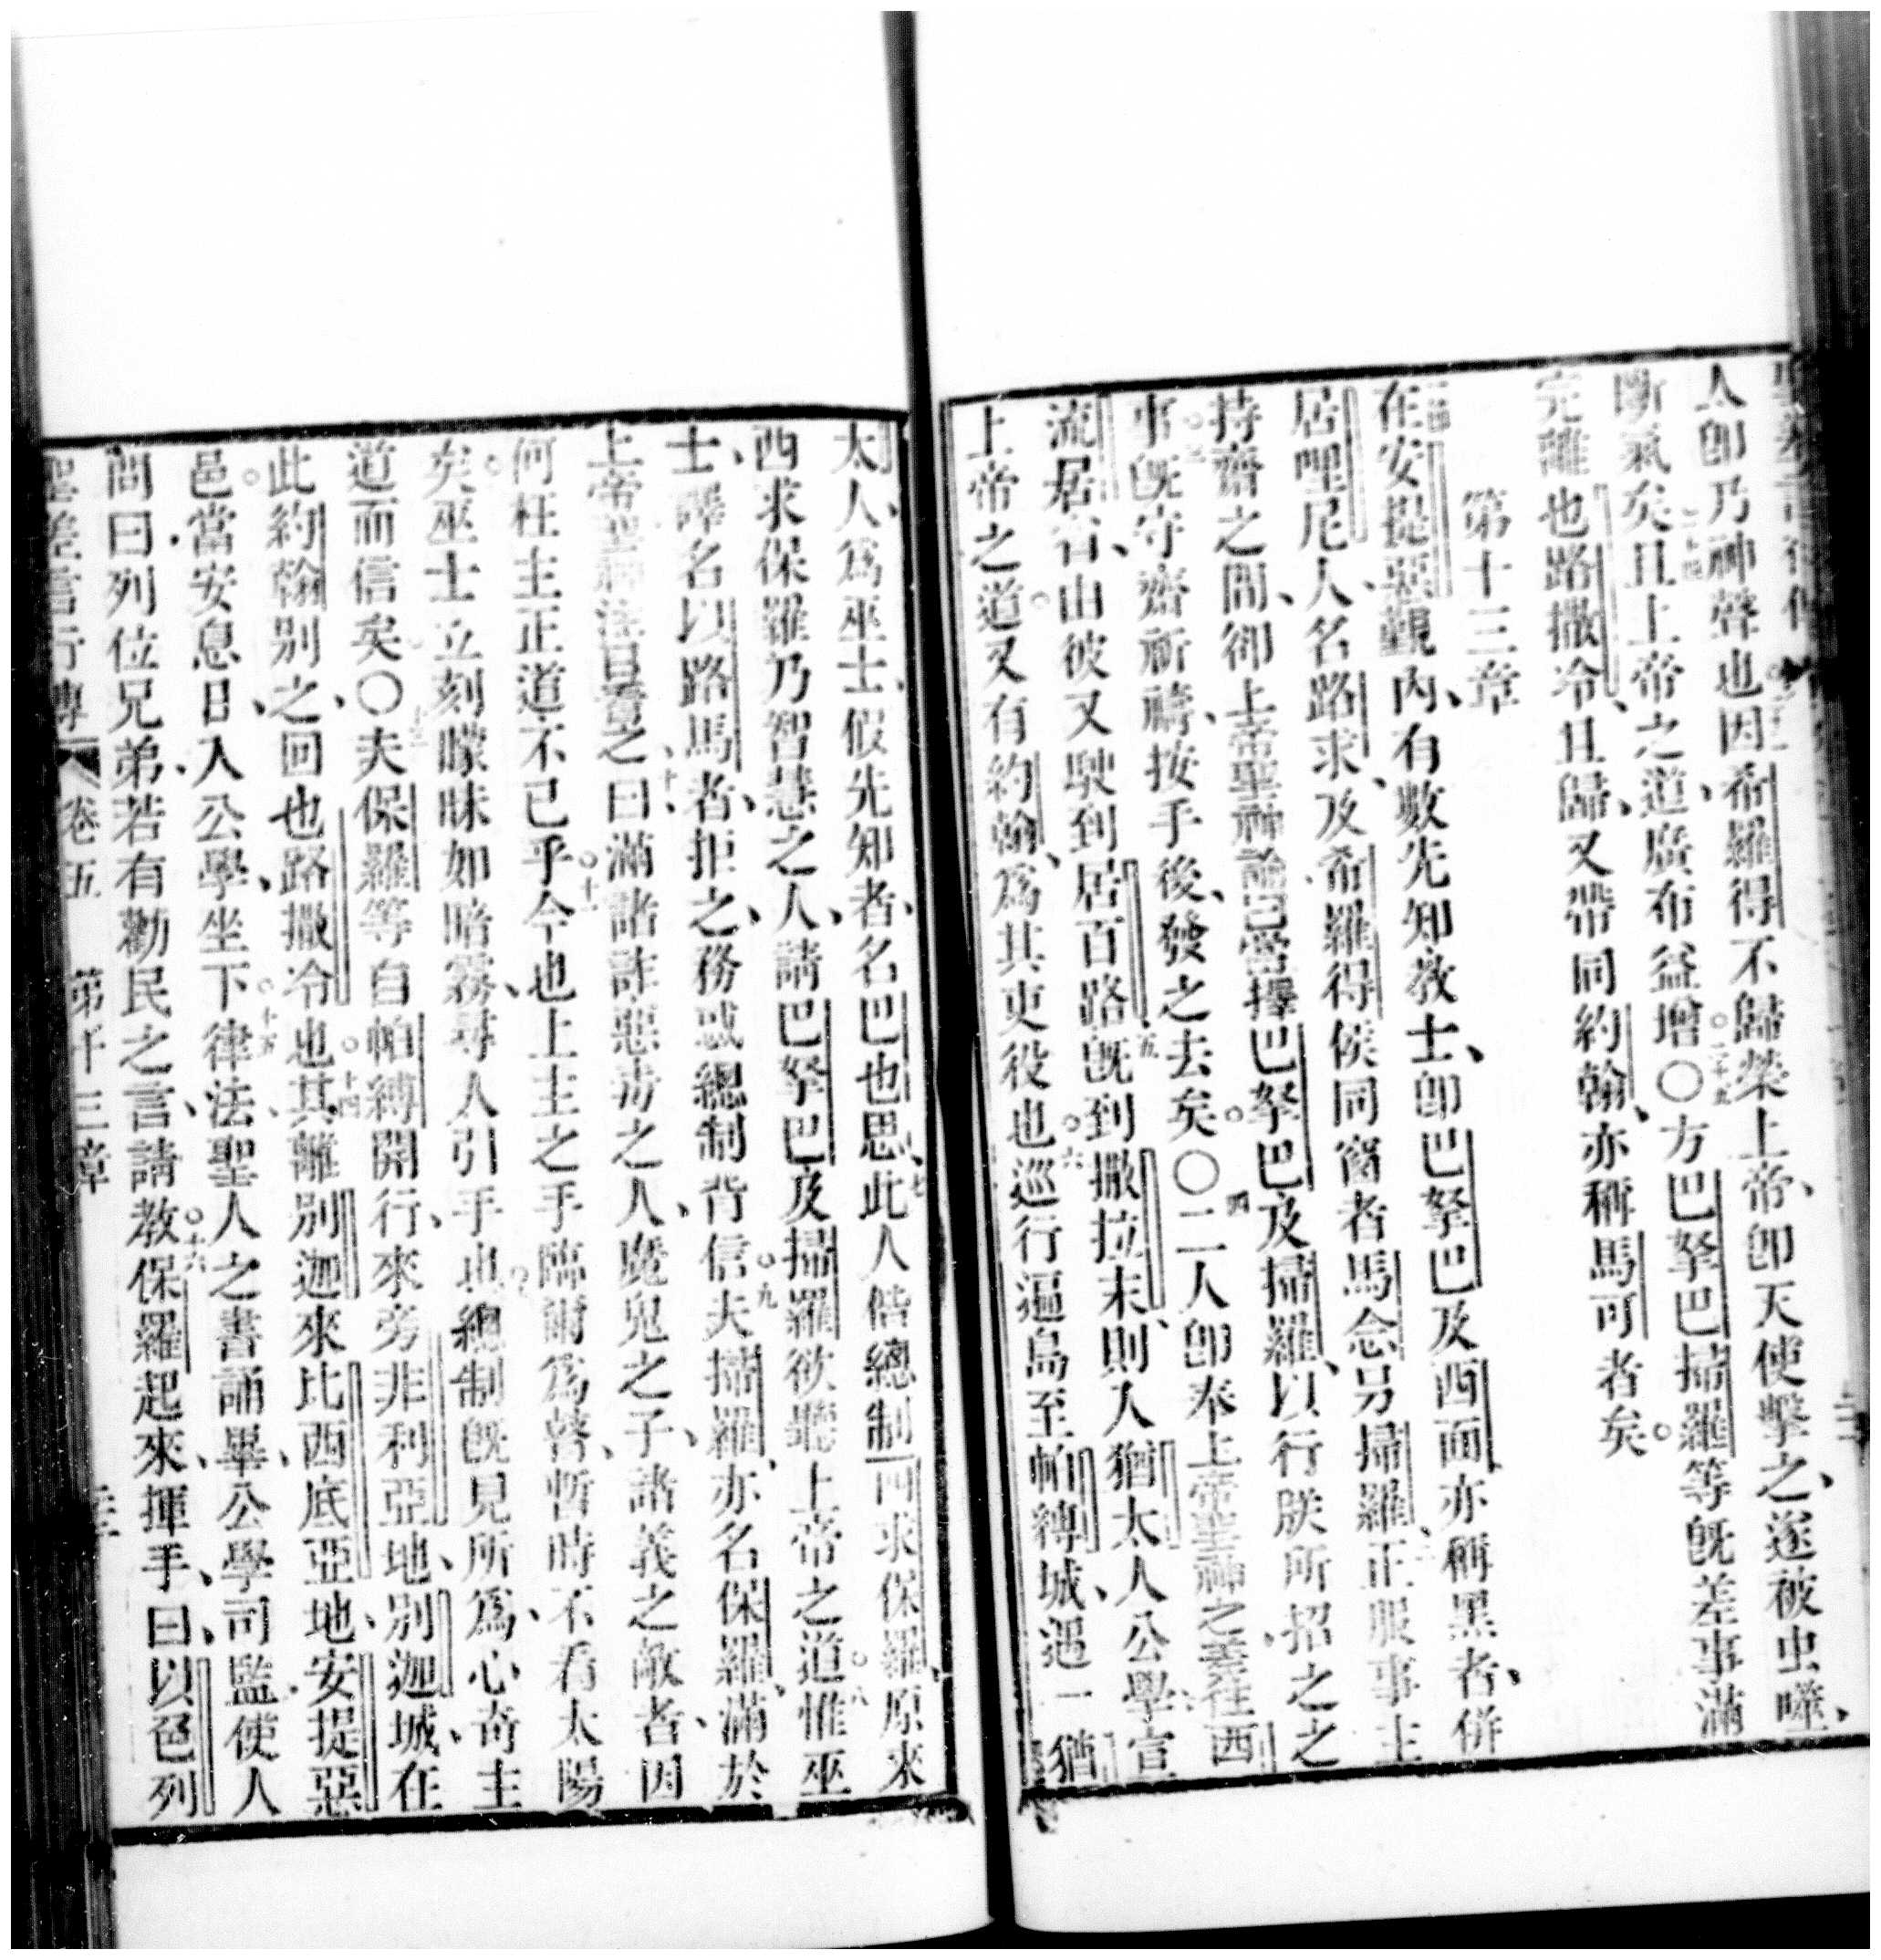 人卽乃神聲也因希羅得不歸榮上帝、卽天使擊之、遂被虫噬、
斷氣矣且上帝之道、廣布益增〇方巴拏巴掃羅等旣差事滿
完離也路撒冷、且歸、又帶同約翰、亦稱馬可者矣。
第十三章
在安提惡觀內、有數先知教士、卽巴拏巴及西面亦稱黑者、併
居哩尼人、名路求、及希羅得侯同窗者馬念另掃羅、正服事主
持齋之間、卻上帝聖神諭已曰擇巴拏巴及掃羅、以行朕所招之之
事。旣守齋祈禱、按手後、發之去矣。〇二人卽奉上帝聖神之差往西
流居、由彼又駛到居百路旣到撒拉末、則人猶太人公學宣
上帝之道。又有約翰、爲其吏役也。巡行逼島至帕縛城、遇一猶
太人、爲巫士、假先知者、名巴也思、此人偕總制、四求保羅、原來
西求保羅乃智慧之人、請巴拏巴及掃羅欲聽上帝之道。惟巫
士、譯名以路馬者、拒之、務惑總制背信。夫掃羅、亦名保羅、滿於
上帝聖神注目看之、曰、滿諸詐惡毒之人、魔鬼之子、諸義之敵者、因
何枉主正道不已乎。今也上主之手臨爾爲瞽、暫時不看太陽
矣。巫士立刻矇昧如暗霧、尋人引手也。總制旣見所爲、心奇主
道而信矣〇夫保羅等自帕縛開行、來旁非利亞地、別迦城、在
此約翰別之、回也路撒冷也。其離別迦來比西底亞地、安提惡
邑。當安息日、入公學、坐下。律法聖人之書誦畢、公學司監使人
問曰列位兄弟、若有勸民之言、請教。保羅起來、揮手、曰、以色列
聖差言行傳 卷五 第十三章